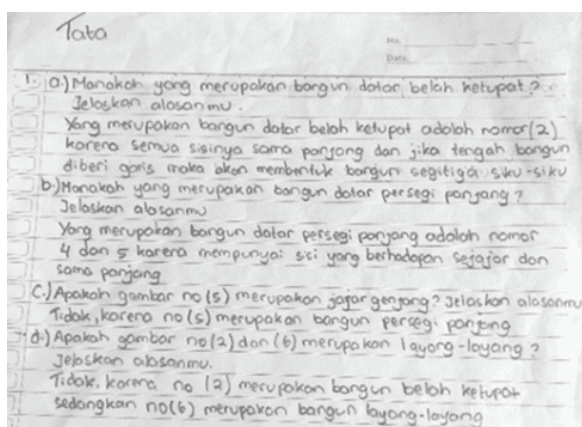 Tata
No.
Date
1. a.) Manakah yang merupakan bangun datar belah ketupat?
Jelaskan alasanmu.
Yang merupakan bangun datar belah ketupat adalah nomor (2)
karena semua sisinya sama panjang dan jika tengah bangun
diberi garis maka akan membentuk bangun segitiga siku-siku
b.) Manakah yang merupakan bangun datar persegi panjang?
Jelaskan alasanmu
Yang merupakan bangun datar persegi panjang adalah nomor
4 dan 5 karena mempunyai sisi yang berhadapan sejajar dan
sama panjang
C.) Apakah gambar no (5) merupakan jajar genjang? Jelaskan alasanmu
Tidak, karena no (5) merupakan bangun persegi panjang
d.) Apakah gambar no (2) dan (6) merupakan layang-layang?
Jelaskan alasanmu.
Tidak, karena no (2) merupakan bangun belah ketupat
sedangkan no (6) merupakan bangun layang-layang